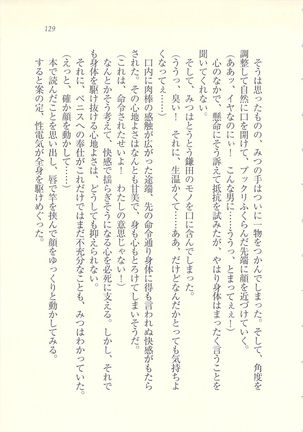 129
そうは思ったものの、みつの手はついに一物をつかんでしまった。そして、角度を
調整して自然に口を開けて、ブックリふくらんだ先端に顔を近づけていく。
(ああッ、イヤなのにい！　こんな男に……ううっ、とまってぇぇ！)
心のなかで、懸命にそう訴えて抵抗を試みたが、やはり身体はまったく言うことを
聞いてくれない。
そして、みつはとうとう鎌田のモノを口に含んでしまった。
(ううっ、臭い！　それに、生温かくて……ああ、だけどなんだかとっても気持ちよ
くなってぇ……)
口内に肉棒の感触が広がった途端、先の命令通り身体に得も言われぬ快感がもたら
された。その心地よさはなんとも甘美で、身も心もとろけてしまいそうだ。
(これは、命令されたせいよ！　わたしの意思じゃない！)
なんとかそう考えて、快感で揺らぎそうになる心を必死に支える。しかし、それで
も身体を駆け抜ける心地よさは、どうしても抑えられない。
それに、ペニスへの奉仕がこれだけではまだ不充分なことも、みつはわかっていた。
(えっと、確か顔を動かして……)
本で読んだことを思い出し、唇で竿を挟んで顔をゆっくりと動かしてみる。
すると案の定、性電気が全身を駆けめぐった。